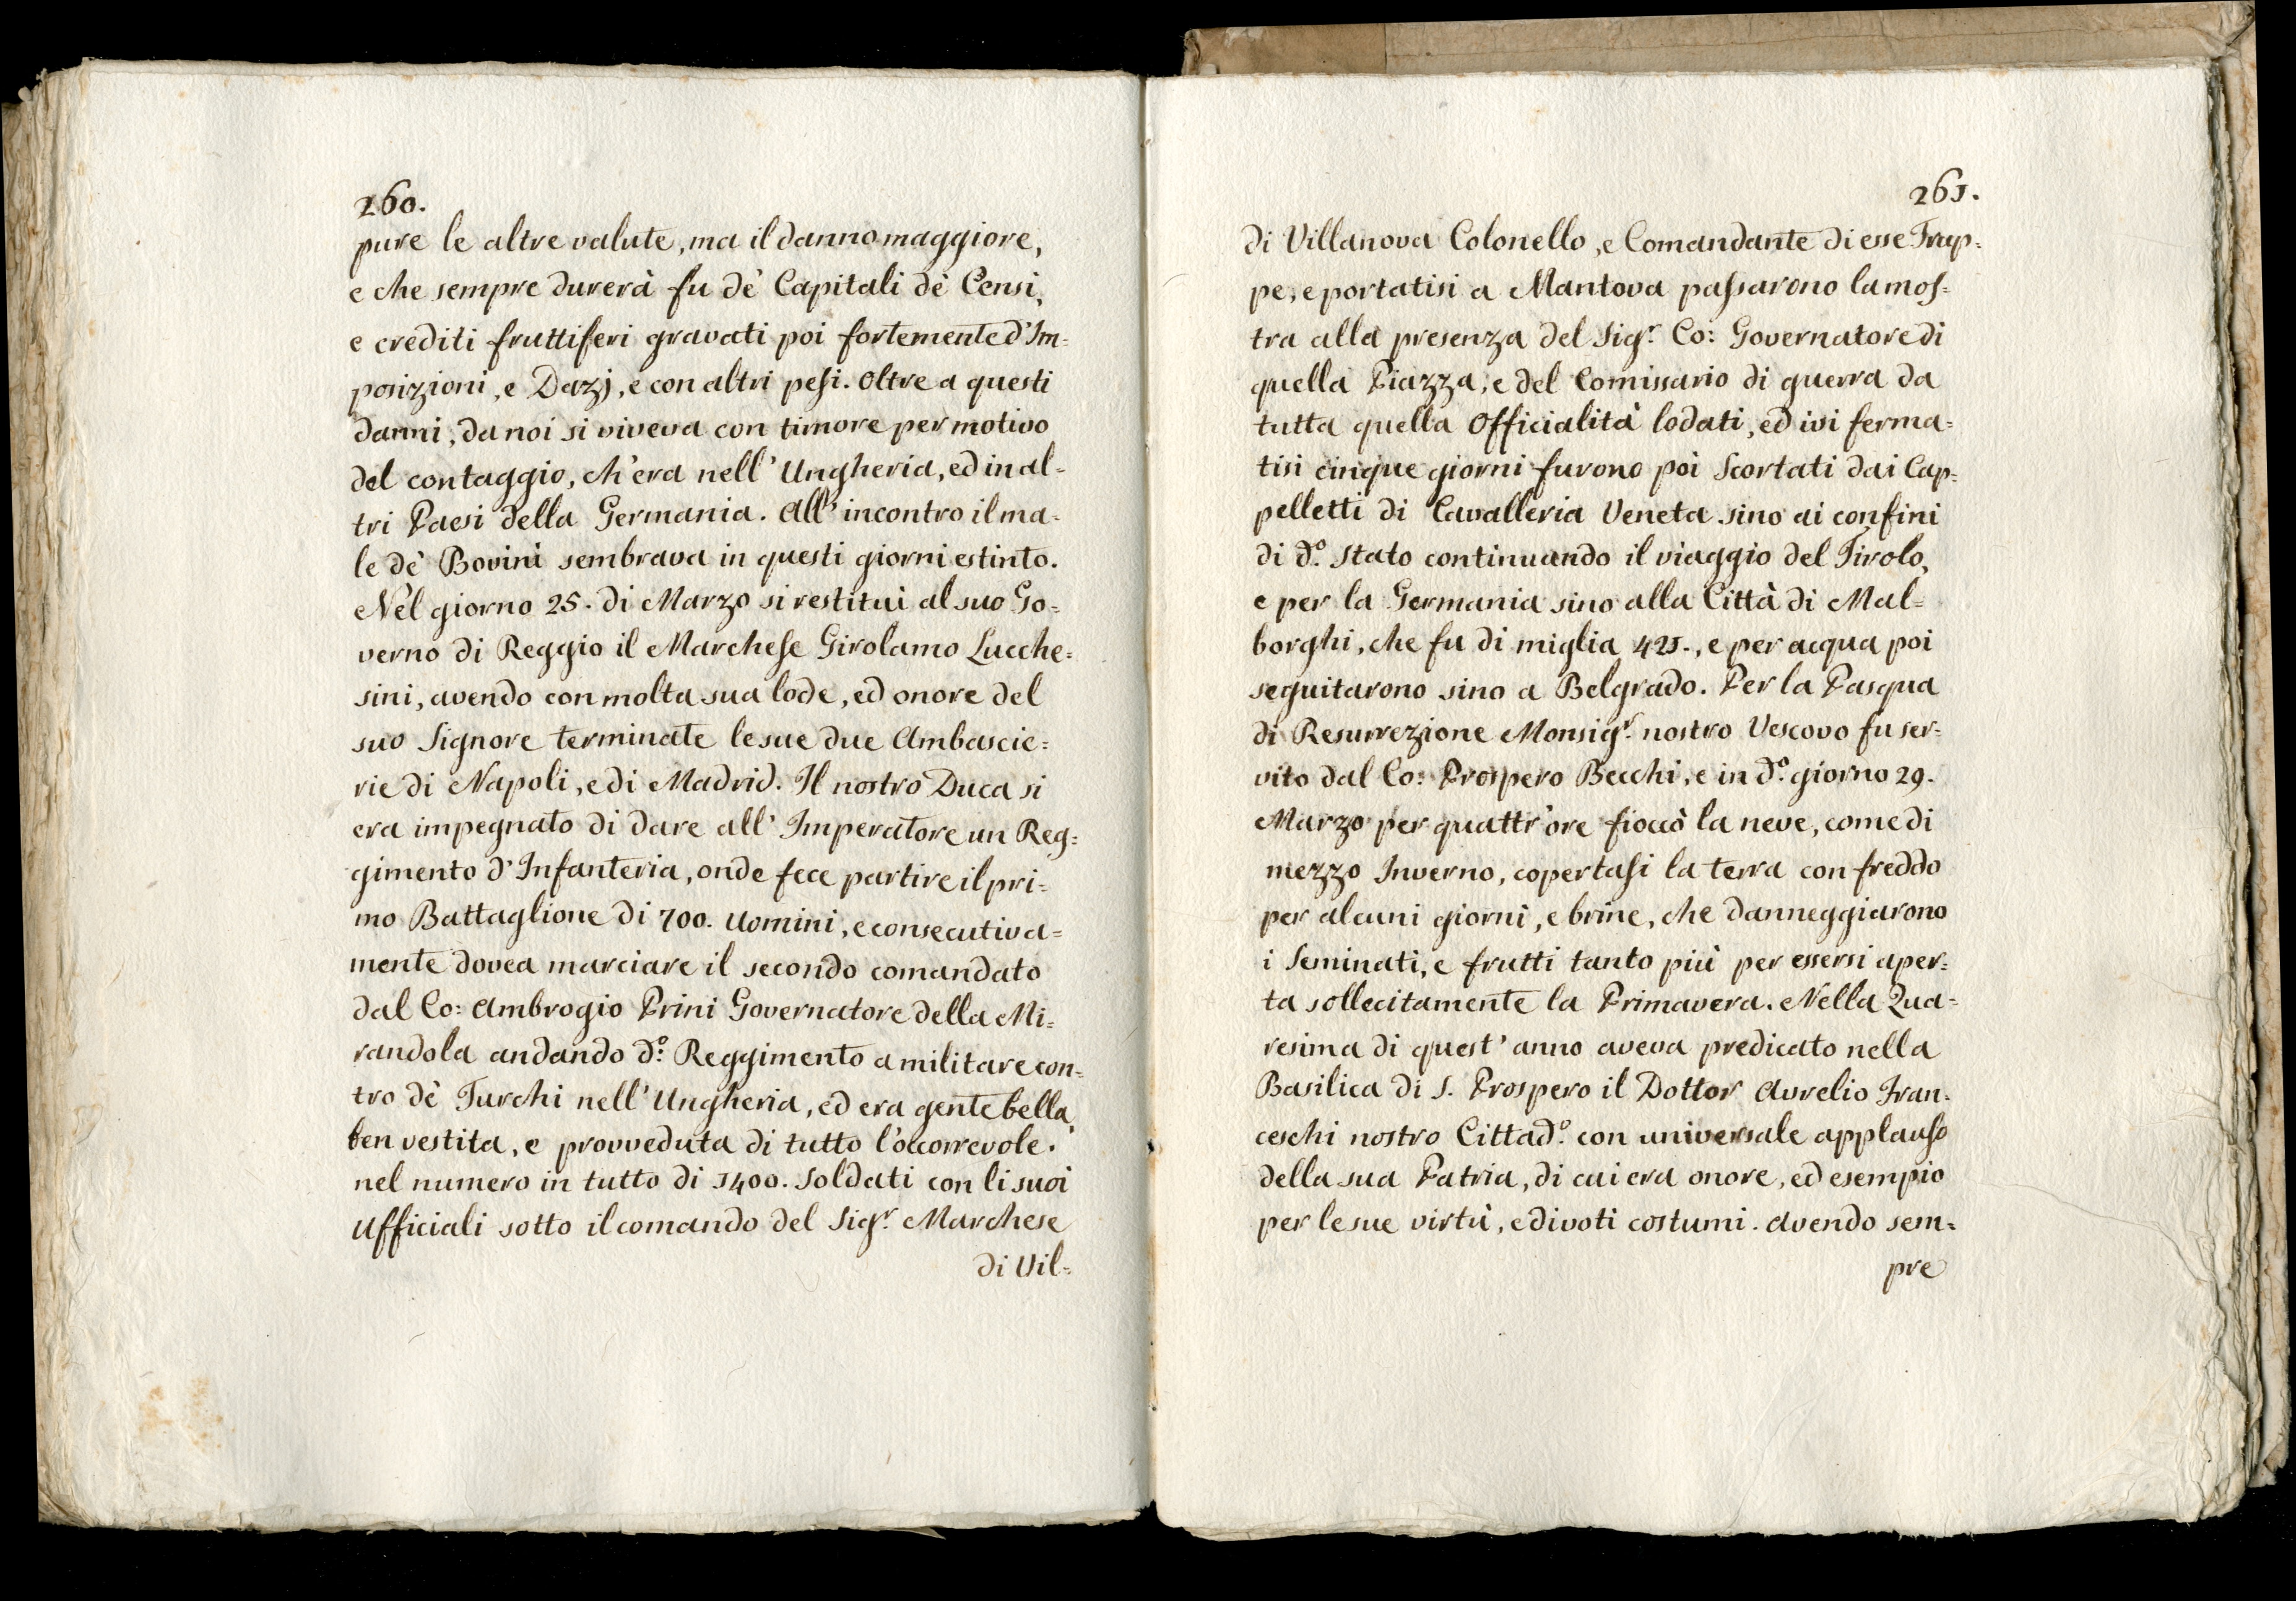 260.
pure le altre valute, ma il danno maggiore,
e che sempre durerà fu dè Capitali dè Censi,
e crediti fruttiferi gravati poi fortemente d'Im=
posizioni, e Dazj, e con altri pesi. Oltre a questi
danni, da noi si viveva con timore per motivo
del contaggio, ch'era nell'Ungheria, ed in al=
tri Paesi della Germania. All'incontro il ma=
le dè Bovini sembrava in questi giorni estinto.
Nèl giorno 25. di Marzo si restituì al suo Go=
verno di Reggio il Marchese Girolamo Lucche=
sini, avendo con molta sua lode, ed onore del
suo Signore terminate le sue due Ambascie=
rie di Napoli, e di Madrid. Il nostro Duca si
era impegnato di dare all'Imperatore un Reg=
gimento d'Infanteria, onde fece partire il pri=
mo Battaglione di 700. Uomini, e consecutiva=
mente dovea marciare il secondo comandato
dal Co: Ambrogio Prini Governatore della Mi=
randola andando d.º Reggimento a militare con=
tro dè Turchi nell'Ungheria, ed era gente bella,
ben vestita, e provveduta di tutto l'occorrevole.
nel numero in tutto di 1400. Soldati con li suoi
Ufficiali sotto il comando del Sig.r Marchese
di Vil=
261.
di Villanova Colonello, e Comandante di esse Trup=
pe, e portatisi a Mantova passarono la mos=
tra alla presenza del Sig.r Co: Governatore di
quella Piazza, e del Comissario di guerra da
tutta quella Officialità lodati, ed ivi ferma=
tisi cinque giorni furono poi Scortati dai Cap=
pelletti di Cavalleria Veneta sino ai confini
di d.º Stato continuando il viaggio del Tirolo,
e per la Germania sino alla Città di Mal=
borghi, che fu di miglia 421., e per acqua poi
seguitarono sino a Belgrado. Per la Pasqua
di Resurrezione Monsig.r nostro Vescovo fu ser=
vito dal Co: Prospero Becchi, e in d.º giorno 29.
Marzo per quattr'ore fioccò la neve, come di
mezzo Inverno, copertasi la terra con freddo
per alcuni giorni, e brine, che danneggiarono
i Seminati, e frutti tanto più per essersi aper=
ta sollecitamente la Primavera. Nella Qua=
resima di quest'anno aveva predicato nella
Basilica di S. Prospero il Dottor Aurelio Fran=
ceschi nostro Cittad.º con universale applauso
della sua Patria, di cui era onore, ed esempio
per le sue virtù, e divoti costumi. Avendo sem=
pre